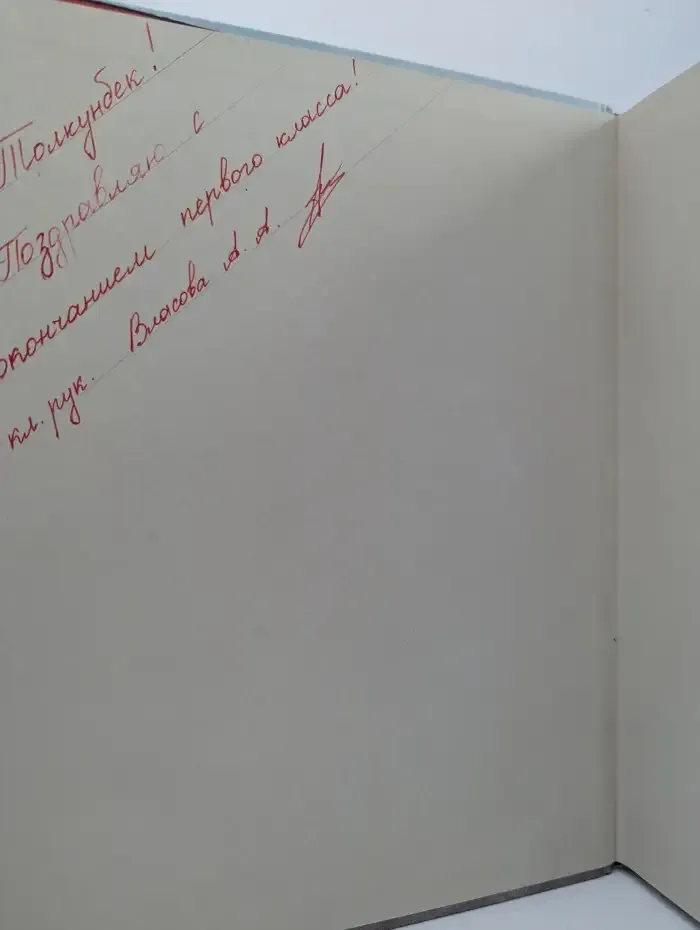 Толкунбек!
Поздравляю с
окончанием первого класса!
кл. рук. Власова А. А.